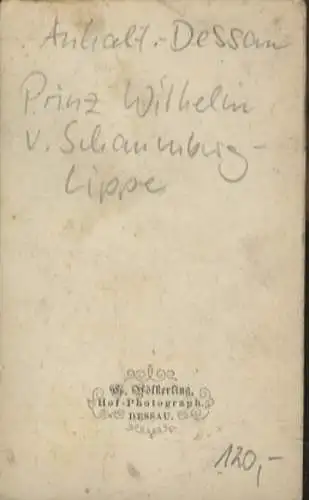 Anhalt.-Dessau
Prinz Wilhelm
v. Schaumburg-
Lippe
Hof-Photograph.
DESSAU.
120,-